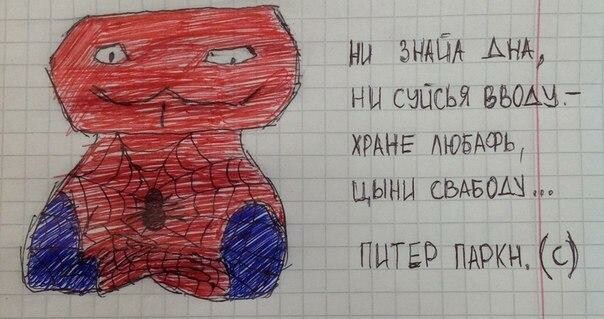 НИ ЗНАЙА ДНА,
НИ СУЙСЬЯ ВВОДУ.–
ХРАНЕ ЛЮБАФЬ,
ЦЫНИ СВАБОДУ...
ПИТЕР ПАРКН. (С)